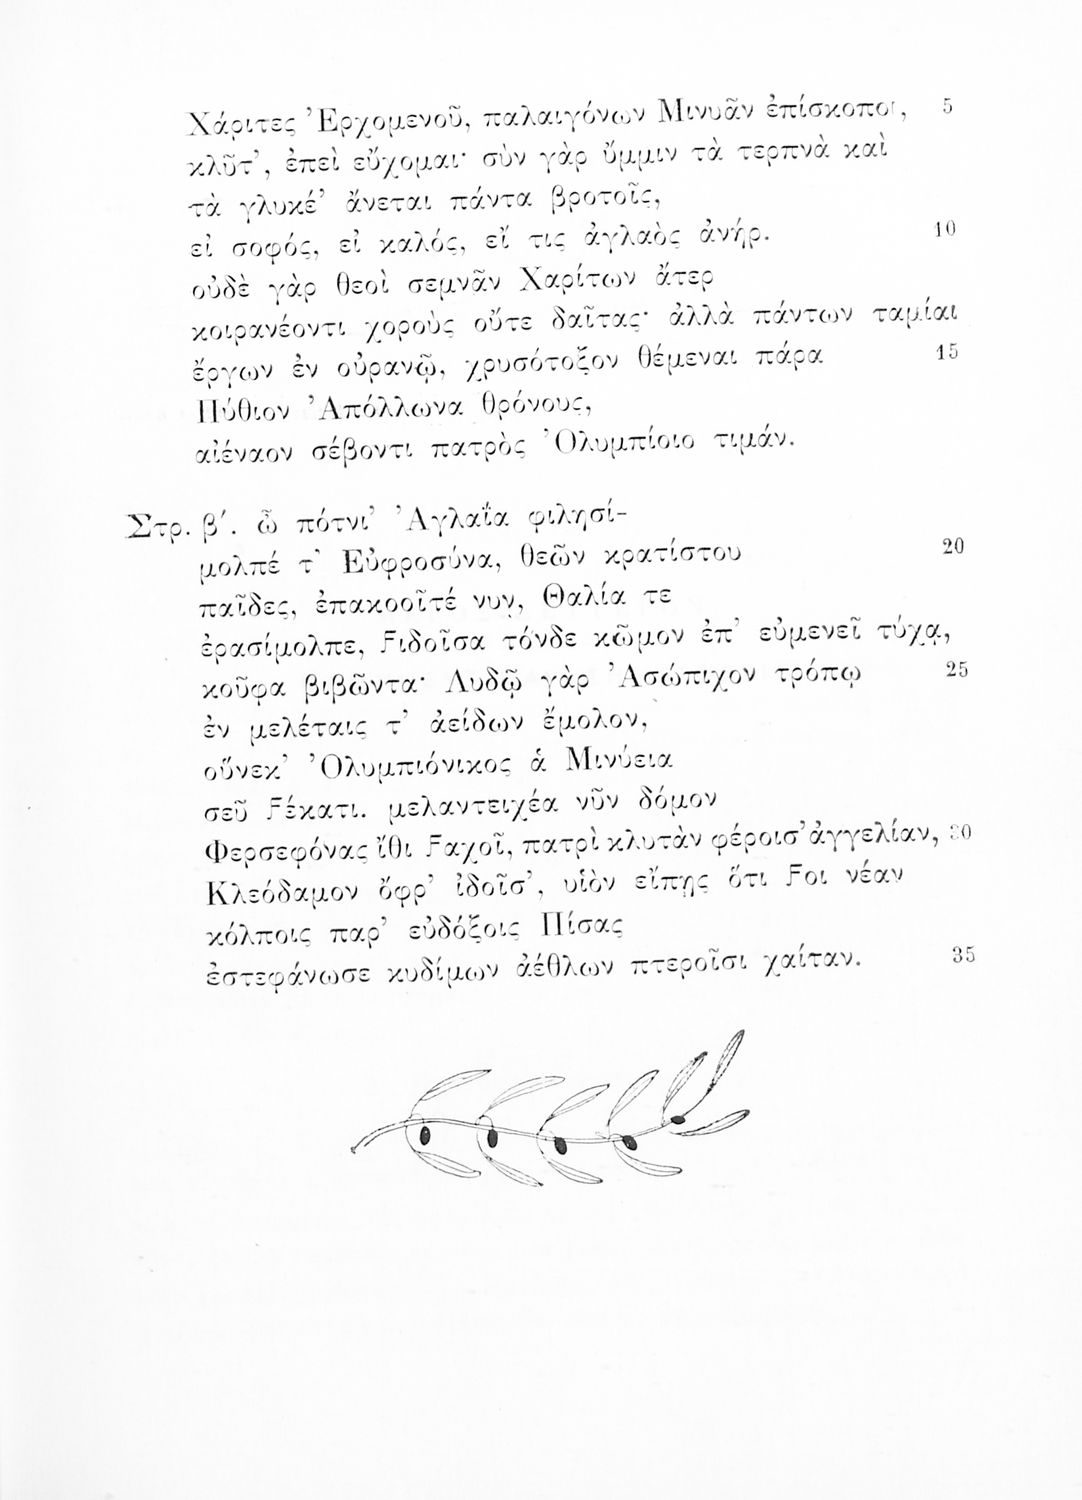 Χάριτες Ἐρχομενοῦ, παλαιγόνων Μινυᾶν ἐπίσκοποι, 5
κλῦτ’, ἐπεὶ εὔχομαι· σὺν γὰρ ὔμμιν τὰ τερπνὰ καὶ
τὰ γλυκέ’ ἄνεται πάντα βροτοῖς,
εἰ σοφός, εἰ καλός, εἴ τις ἀγλαὸς ἀνήρ. 10
οὐδὲ γὰρ θεοὶ σεμνᾶν Χαρίτων ἄτερ
κοιρανέοντι χοροὺς οὔτε δαῖτας· ἀλλὰ πάντων ταμίαι
ἔργων ἐν οὐρανῷ, χρυσότοξον θέμεναι πάρα 15
Πύθιον Ἀπόλλωνα θρόνους,
αἰέναον σέβοντι πατρὸς Ὀλυμπίοιο τιμάν.
Στρ. β΄. ὦ πότνι’ Ἀγλαΐα φιλησί-
μολπέ τ’ Εὐφροσύνα, θεῶν κρατίστου 20
παῖδες, ἐπακοοῖτέ νυν, Θαλία τε
ἐρασίμολπε, Ϝιδοῖσα τόνδε κῶμον ἐπ’ εὐμενεῖ τύχᾳ,
κοῦφα βιβῶντα· Λυδῷ γὰρ Ἀσώπιχον τρόπῳ 25
ἐν μελέταις τ’ ἀείδων ἔμολον,
οὕνεκ’ Ὀλυμπιόνικος ἁ Μινύεια
σεῦ Ϝέκατι. μελαντειχέα νῦν δόμον
Φερσεφόνας ἴθι Ϝαχοῖ, πατρὶ κλυτὰν φέροισ’ ἀγγελίαν, 30
Κλεόδαμον ὄφρ’ ἰδοῖσ’, υἱὸν εἴπῃς ὅτι Ϝοι νέαν
κόλποις παρ’ εὐδόξοις Πίσας
ἐστεφάνωσε κυδίμων ἀέθλων πτεροῖσι χαίταν. 35